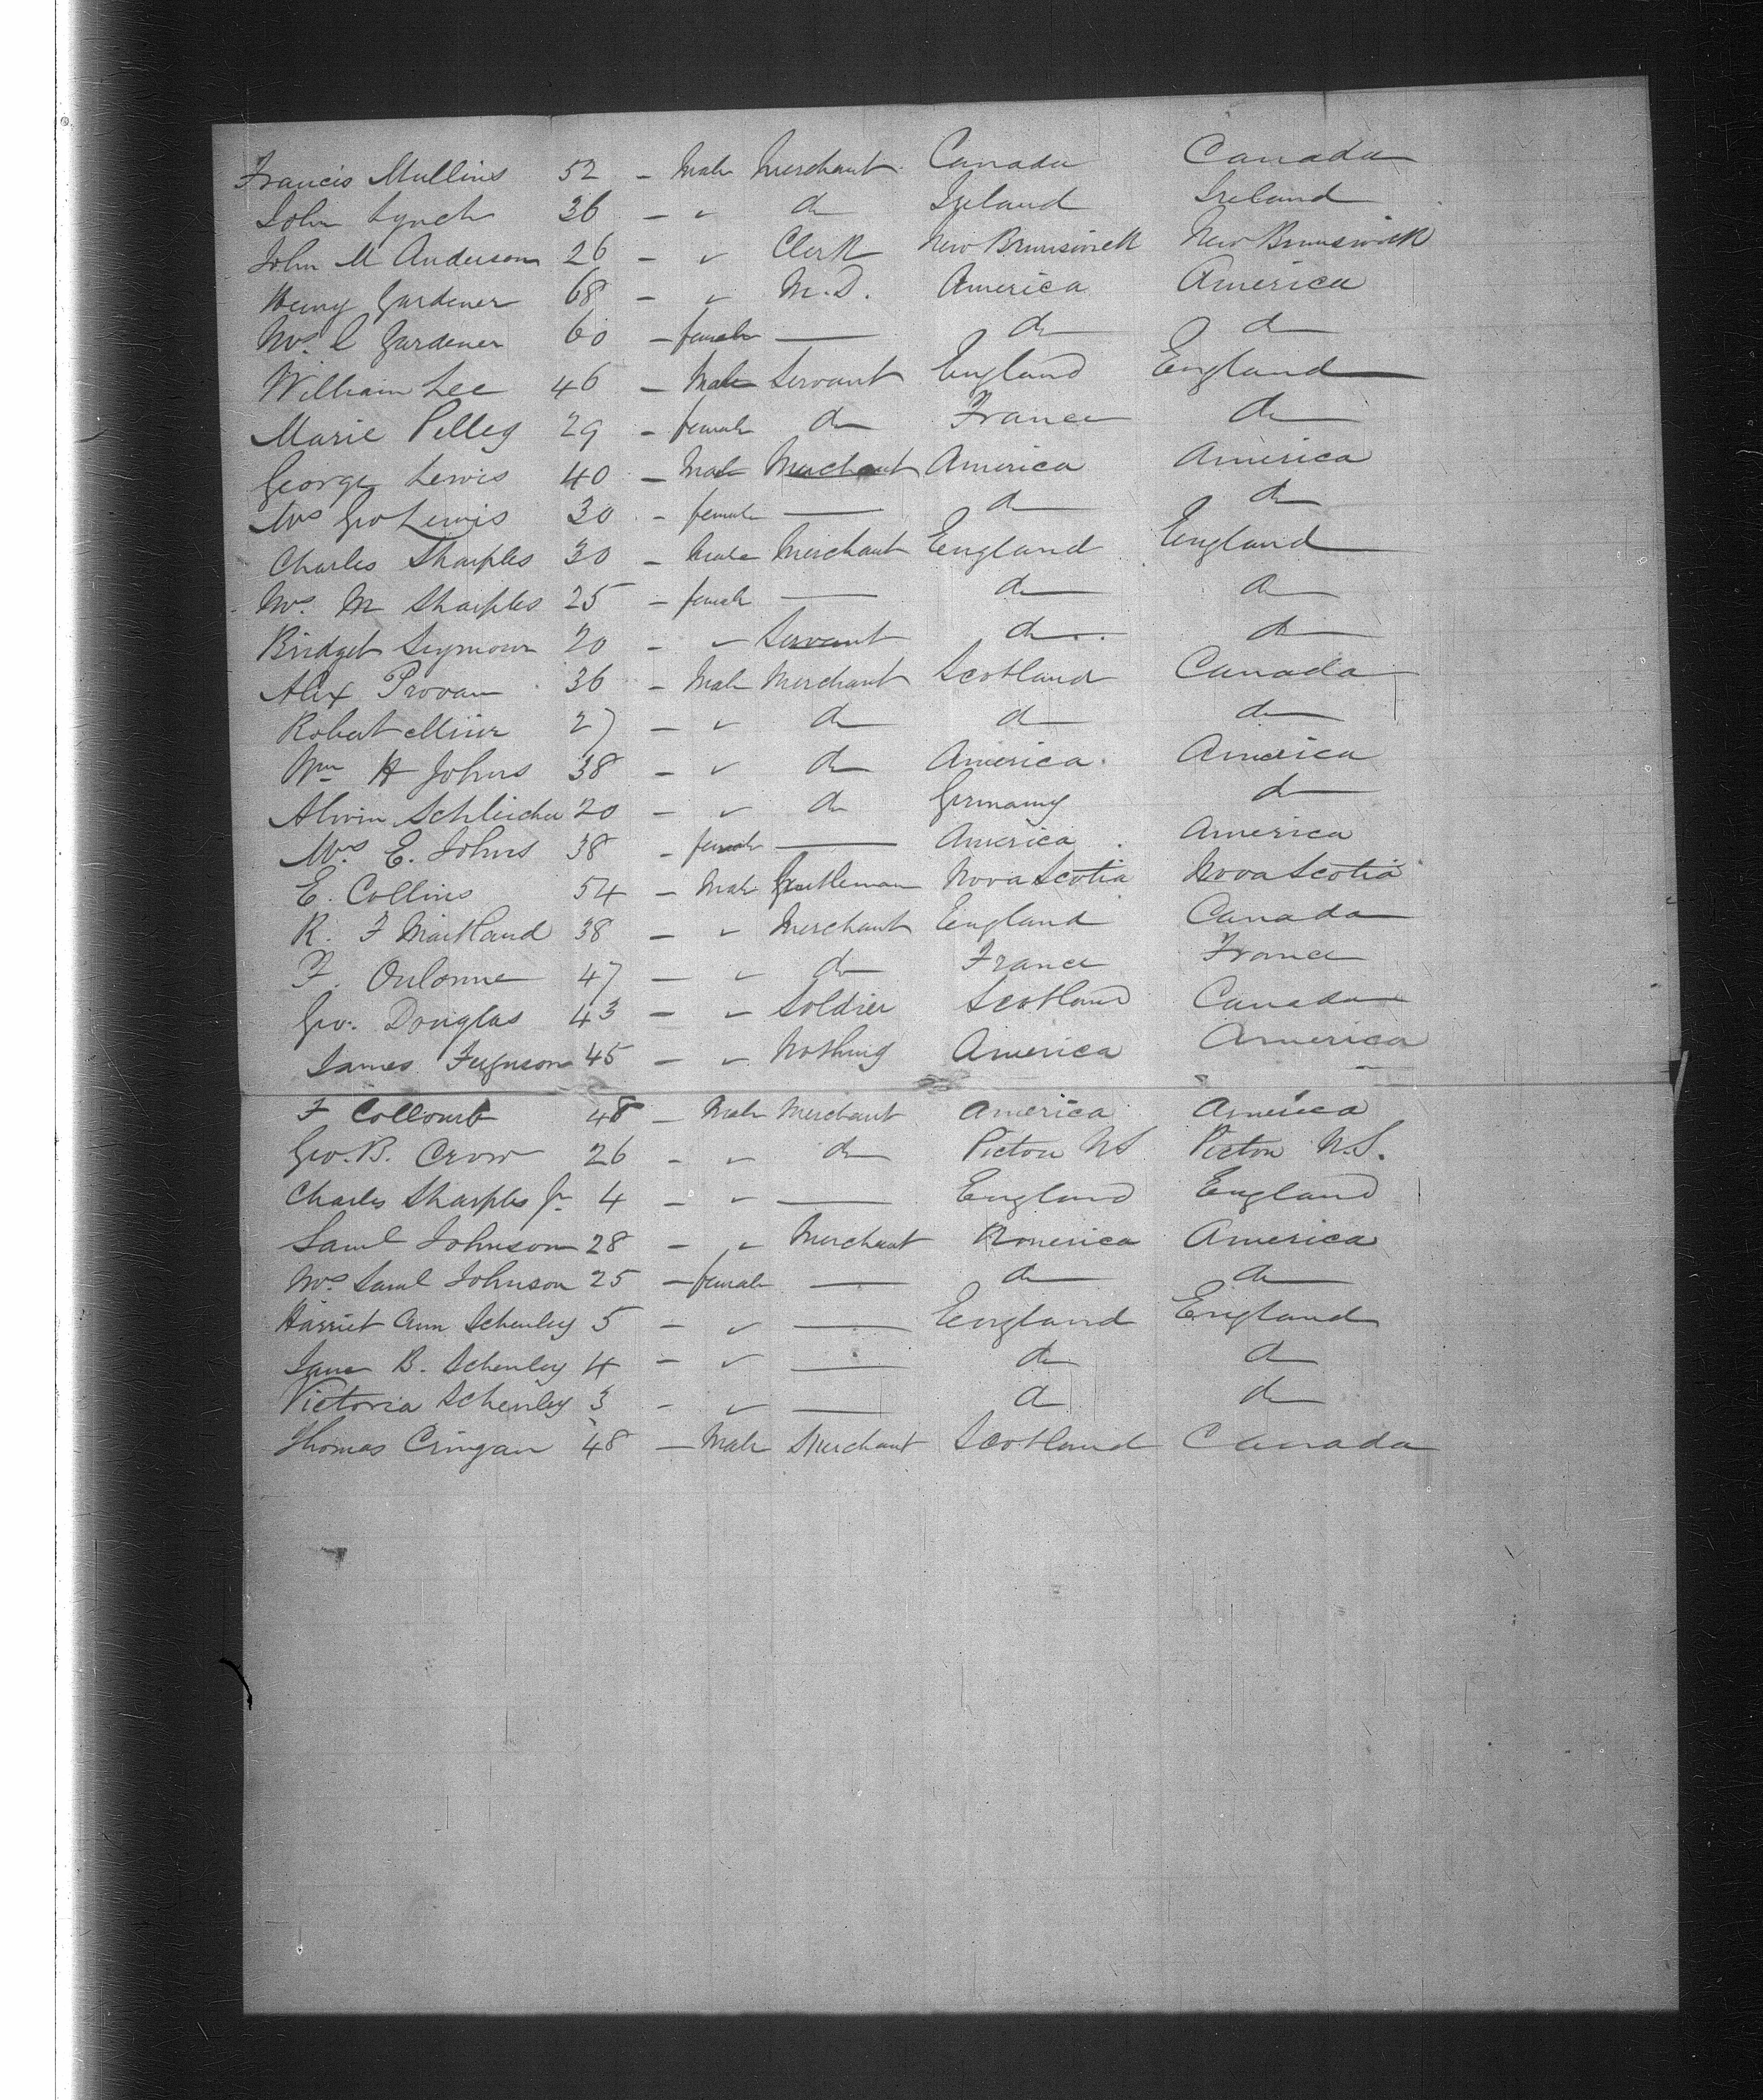 Francis Mullins 52 - Male Merchant Canada Canada
John Lynch 36 - " do Ireland Ireland
John M Anderson 26 - " Clerk New Brunswick New Brunswick
Henry Gardener 68 - " M.D. America America
Mrs C Gardener 60 - female — do do
William Lee 46 - Male Servant England England
Marie Pelleg 29 - female do France do
George Lewis 40 - Male Merchant America America
Mrs Geo Lewis 30 - female — do do
Charles Sharples 30 - Male Merchant England England
Mrs M Sharples 25 - female — do do
Bridget Seymour 20 - " Servant do do
Alex Provan 36 - Male Merchant Scotland Canada
Robert Muir 27 - " do do do
Wm H Johns 38 - " do America America
Alwin Schleicher 20 - " do Germany do
Mrs E. Johns 38 - female — America America
E. Collins 54 - Male Gentleman Nova Scotia Nova Scotia
R. F Maitland 38 - " Merchant England Canada
F. 47 - " do France France
Geo. Douglas 43 - " Soldier Scotland Canada
James Ferguson 45 - " Nothing America America
F Collomb 48 - Male Merchant America America
Geo. B. Crow 26 - " do Pictou NS Pictou N.S.
Charles Sharples Jr 4 - " — England England
Saml Johnson 28 - " Merchant America America
Mrs Saml Johnson 25 - female — do do
Harriet Ann Schenley 5 - " — England England
Jane B. Schenley 4 - " — do do
Victoria Schenley 3 - " — do do
Thomas Cringan 48 - Male Merchant Scotland Canada